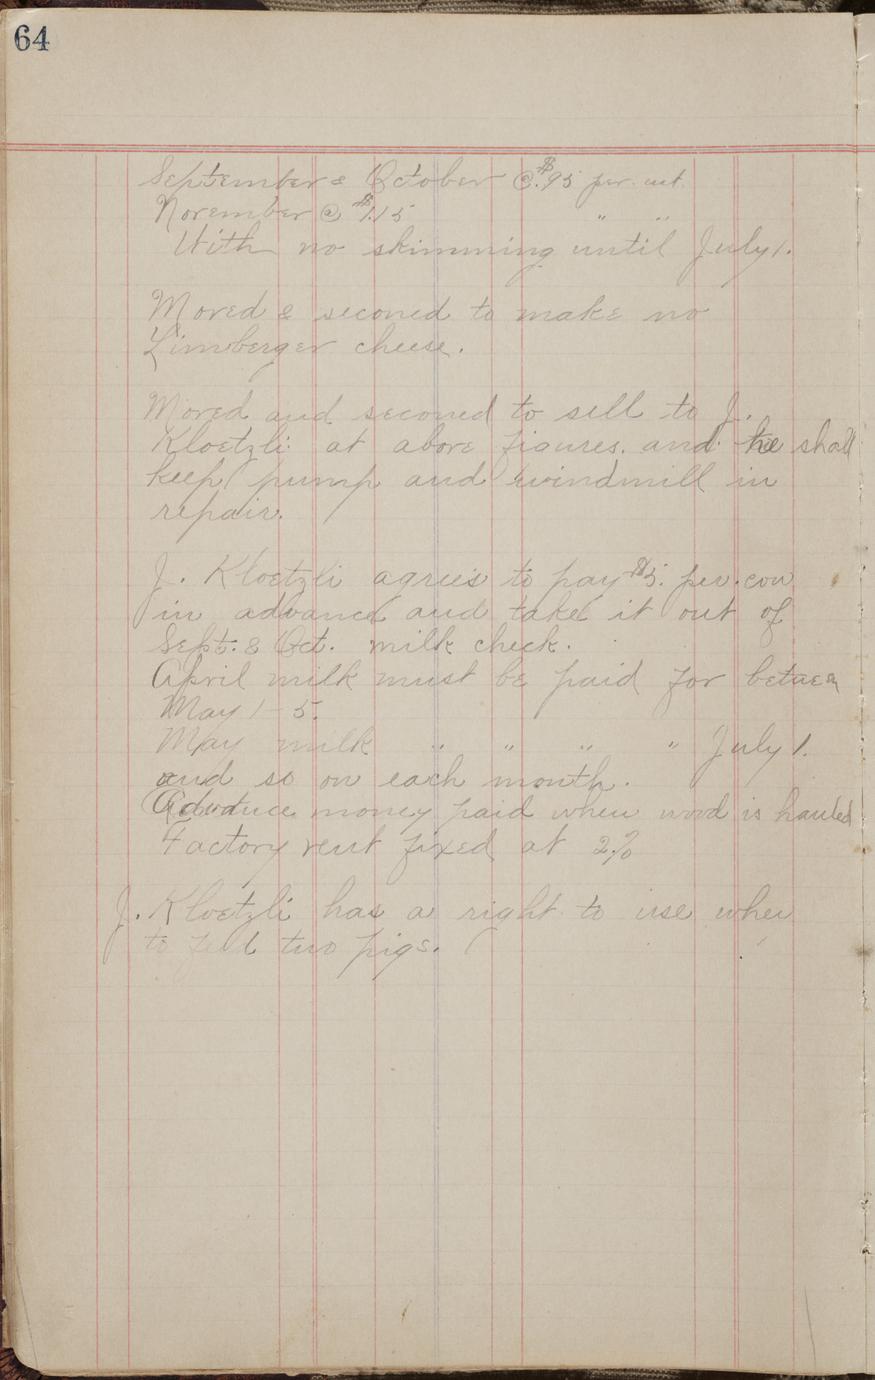 64
September & October @ $.95 per. cwt.
November @ $1.15 " "
With no skimming until July 1.
Moved & seconed to make no
Limberger cheese.
Moved and seconed to sell to J.
Kloetzli at above figures. and he shall
keep pump and windmill in
repair.
J. Kloetzli agrees to pay $5. per. cow
in advance and take it out of
Sept. & Oct. milk check.
April milk must be paid for between
May 1-5.
May milk " " " " July 1.
and so on each month.
Advance money paid when wood is hauled
Factory rent fixed at 2%
J. Kloetzli has a right to use whey
to feed two pigs.